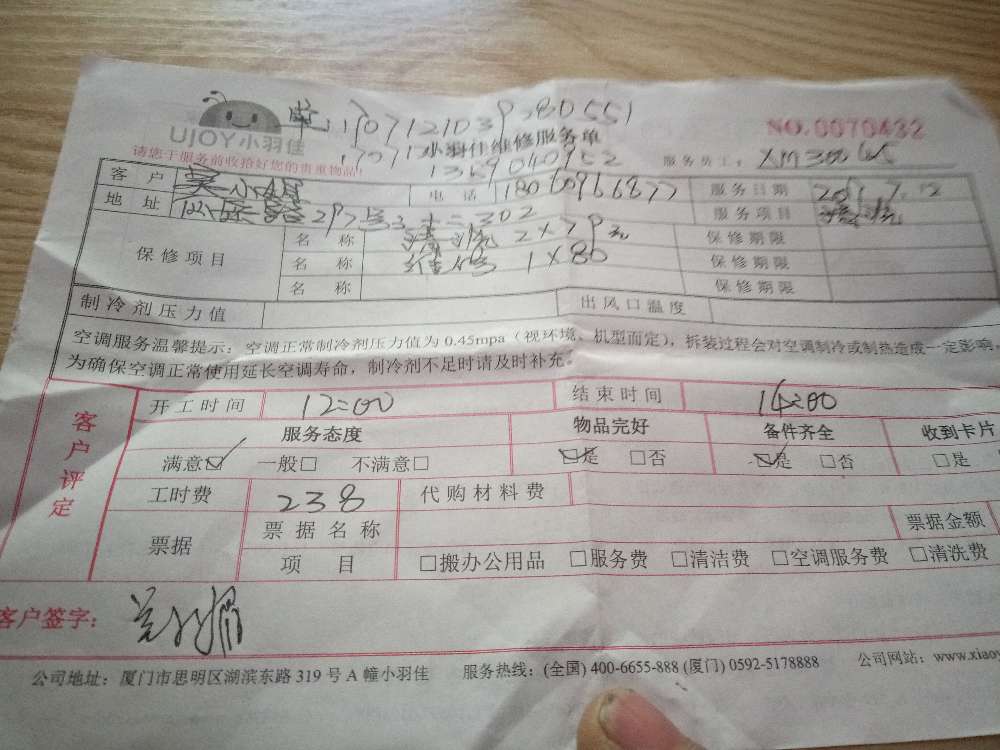 UJOY小羽佳
小羽佳维修服务单
NO.0070432
请您于服务前收拾好您的贵重物品!
服务员工:
客户 电话 18060966877 服务日期
地址 服务项目 清洗
保修项目 名称 清洗 2×79元 保修期限
名称 维修 1×80 保修期限
名称 保修期限
制冷剂压力值 出风口温度
空调服务温馨提示:空调正常制冷剂压力值为0.45mpa(视环境、机型而定),拆装过程会对空调制冷或制热造成一定影响,
为确保空调正常使用延长空调寿命,制冷剂不足时请及时补充。
客户评定
开工时间 12:00 结束时间 14:00
服务态度 物品完好 备件齐全 收到卡片
满意☑ 一般□ 不满意□ ☑是 □否 ☑是 □否 □是
工时费 238 代购材料费
票据 票据名称 票据金额
项目 □搬办公用品 □服务费 □清洁费 □空调服务费 □清洗费
客户签字:
公司地址:厦门市思明区湖滨东路319号A幢小羽佳 服务热线:(全国)400-6655-888(厦门)0592-5178888 公司网站:www.xiaoy